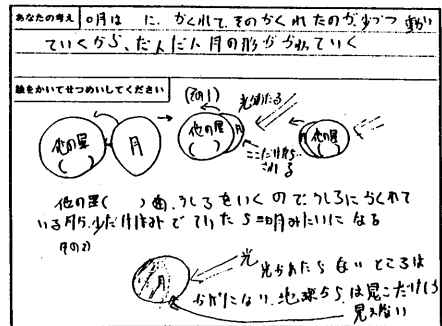 あなたの考え
○月は に、かくれて、そのかくれたのが、少づつ 動い
ていくから、だんだん月の形がかわっていく
絵をかいてせつめいしてください
(その1)
光があたる
他の星
( )
月
他の星
( )
月
ここだけ
される
月
他の星
( )
他の星( ) うしろをいくので、うしろにかくれて
いる月
でていたら 三日月みたいになる
その2)
月
光
光があたらないところは
かげになり、地球からは見こだけしか
見えない